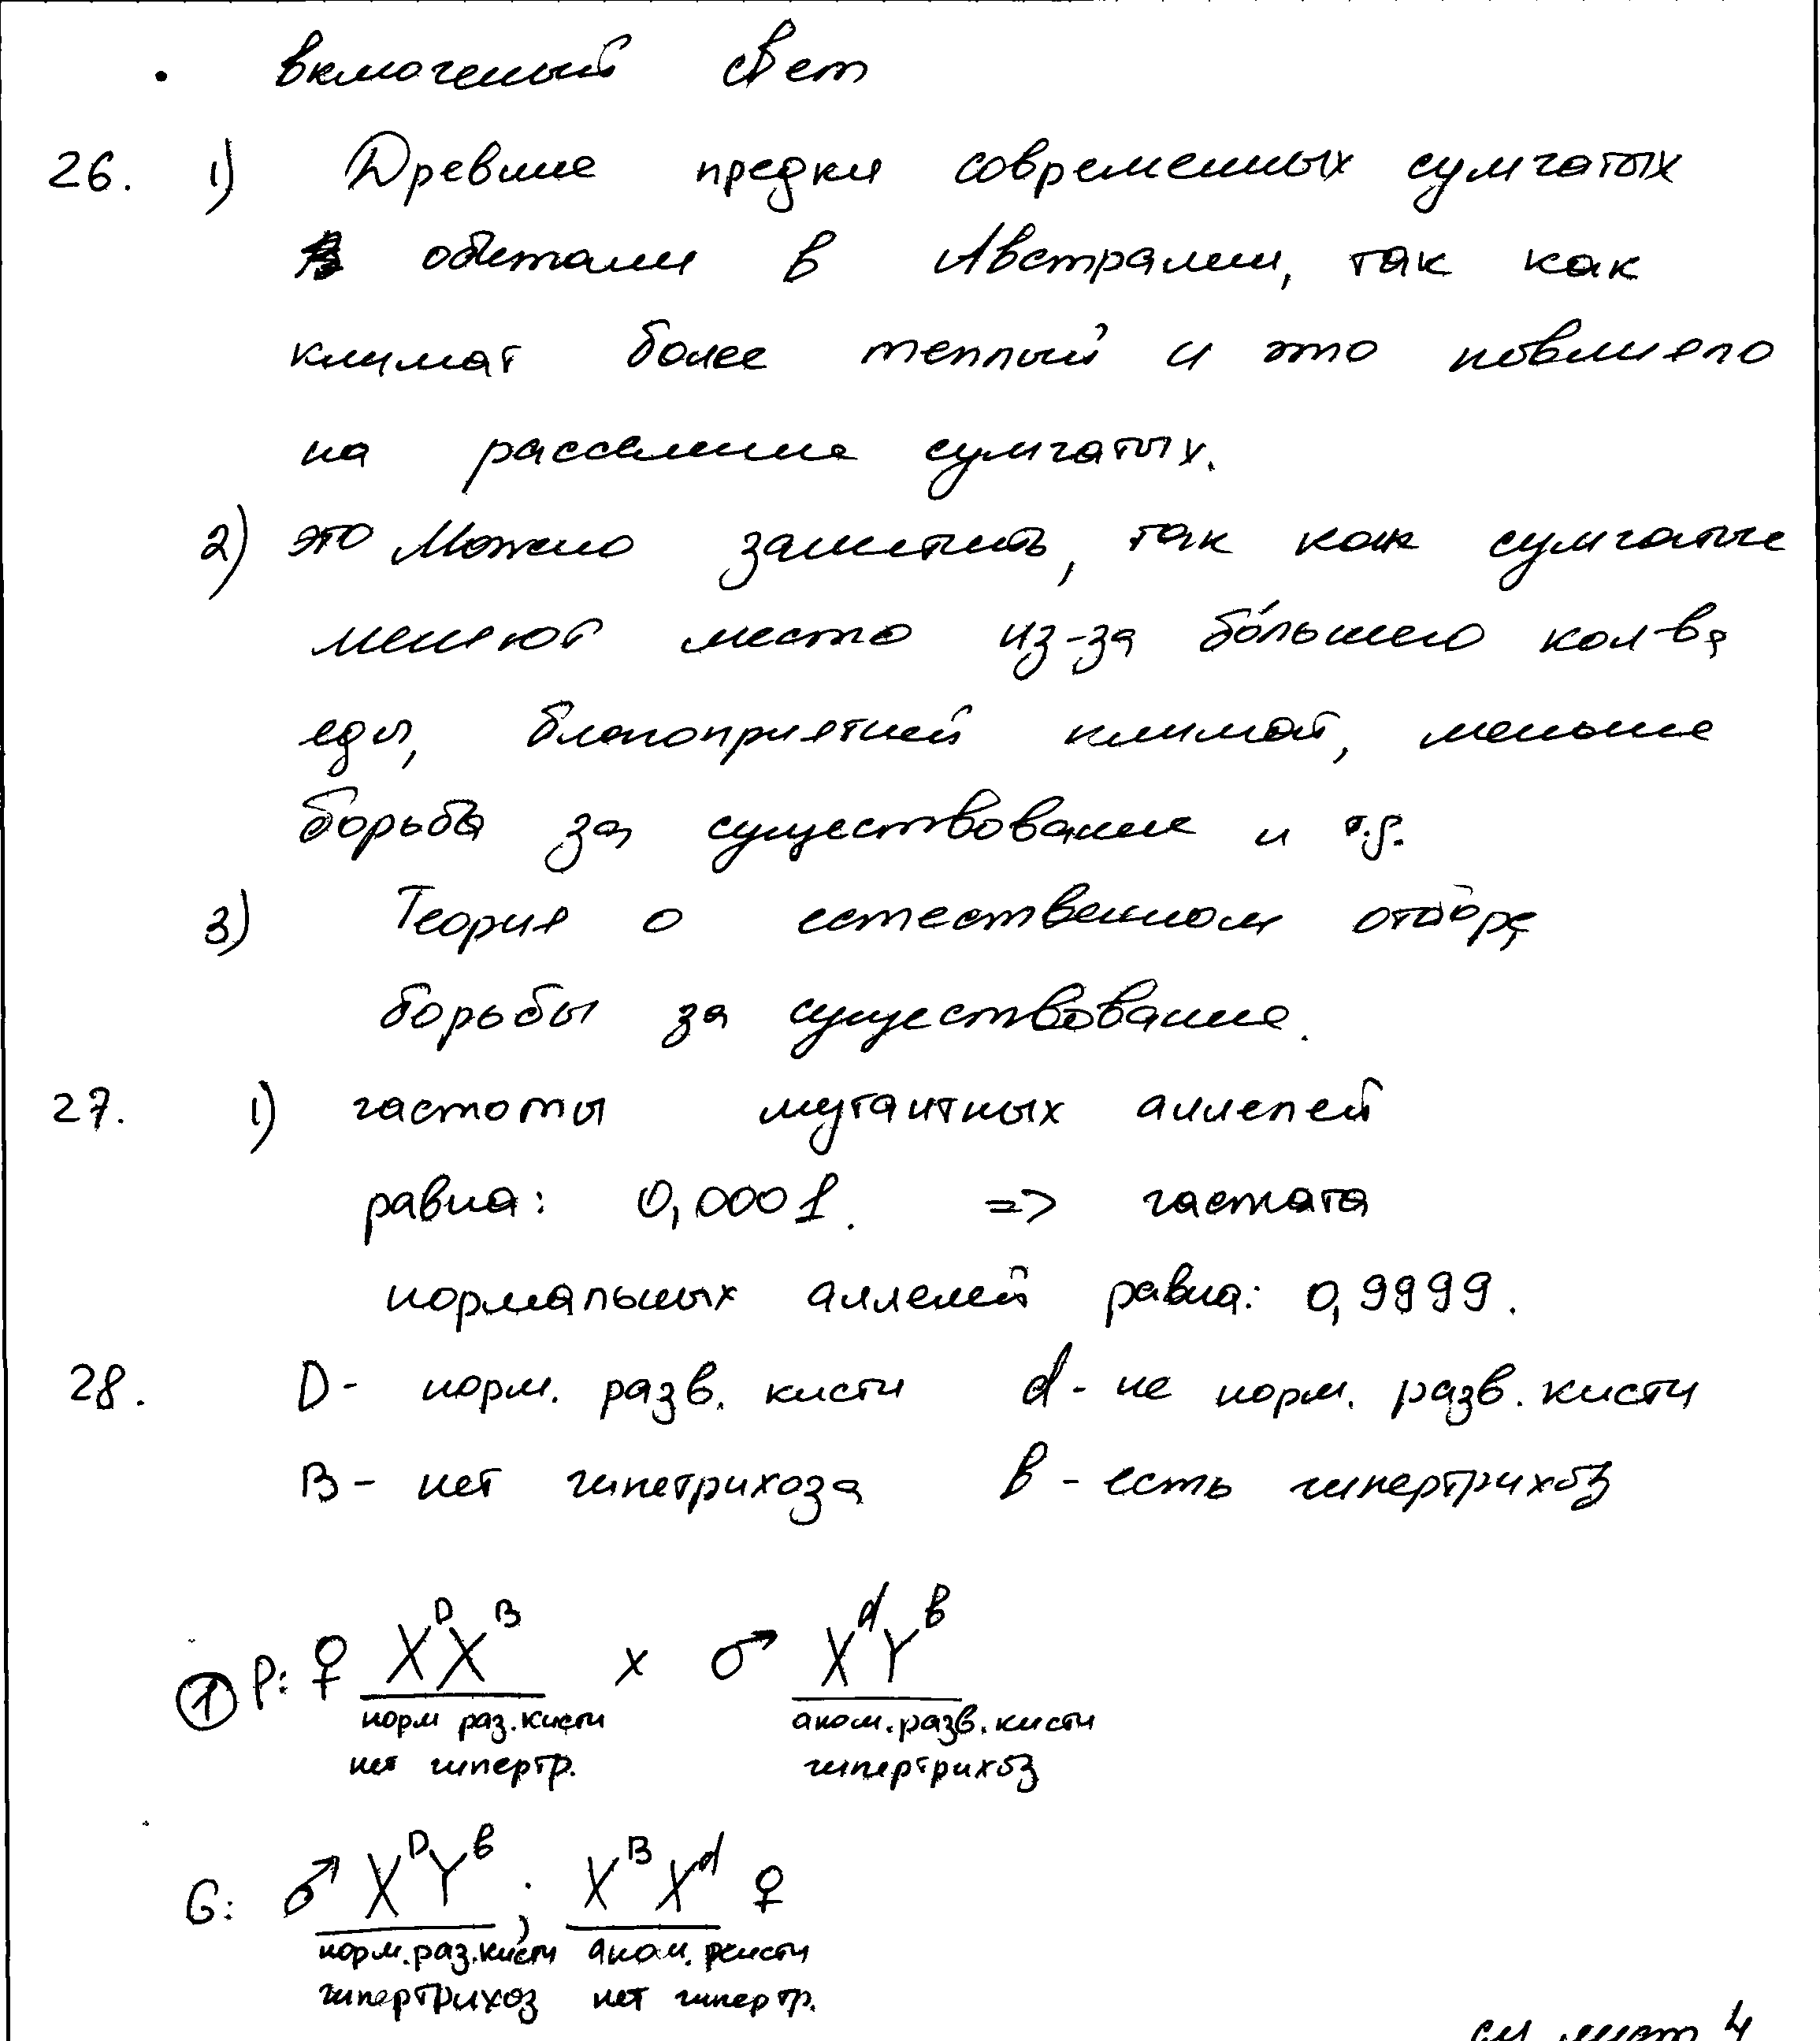 • включеный свет
26. 1) Древние предки современных сумчатых
обитали в Австралии, так как
климат более теплый и это повлияло
на расселение сумчатых.
2) это можно заметить, так как сумчатые
меняют место из-за бо́льшего кол-ва
еды, благоприятней климат, меньше
борьба за существование и т.д.
3) Теория о естественном отборе,
борьбы за существование.
27. 1) частоты мутантных аллелей
равна: 0,0001. => частата
нормальных аллелей равна: 0,9999.
28. D - норм. разв. кисти d - не норм. разв. кисти
B - нет гипетрихоза b - есть гипертрихоз
① P: ♀ XᴰXᴮ x ♂ XᵈYᵇ
норм раз. кисти аном. разв. кисти
нет гипертр. гипертрихоз
G: ♂ XᴰYᵇ ; XᴮXᵈ ♀
норм. раз. кисти аном. кисти
гипертрихоз нет гипертр.
см лист 4